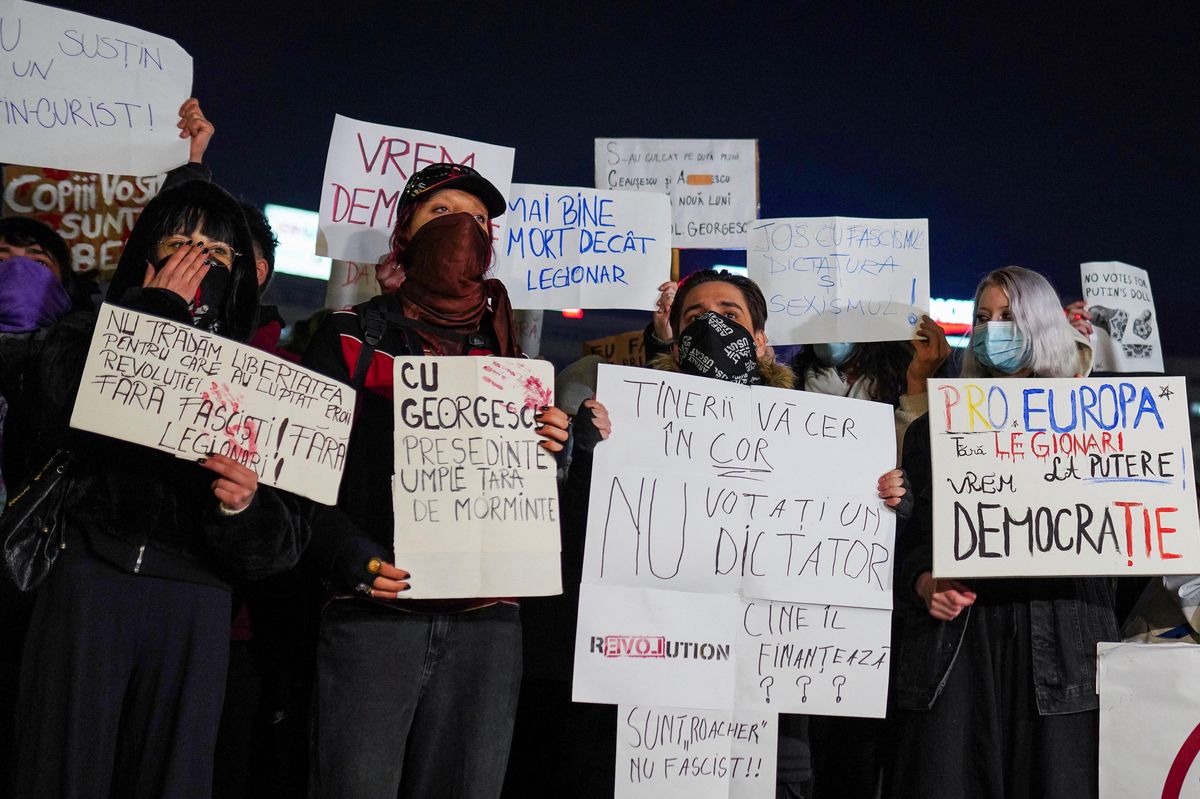 SUSȚIN
UN
TIN-CURIST!
COPIII VOȘTRI
SUNT
VREM
S-AU CULCAT PE DUPĂ PRUNI
CEAUȘESCU ȘI
NOUĂ LUNI
GEORGESCU
MAI BINE
MORT DECÂT
LEGIONAR
JOS CU FASCISMUL
DICTATURA
SEXISMUL!
NO VOTES FOR
PUTIN'S DOLL
NU TRĂDAM LIBERTATEA
PENTRU CARE AU LUPTAT EROII
REVOLUȚIEI
FĂRĂ FASCIȘTI! FĂRĂ
LEGIONARI!!
CU
GEORGESCU
PREȘEDINTE
UMPLE ȚARA
DE MORMINTE
TINERII VĂ CER
ÎN COR
NU VOTAȚI UN
DICTATOR
REVOLUTION
CINE ÎL
FINANȚEAZĂ
???
SUNT „ROACHER"
NU FASCIST!!
PRO.EUROPA
Fără LEGIONARI
LA PUTERE!
VREM
DEMOCRAȚIE